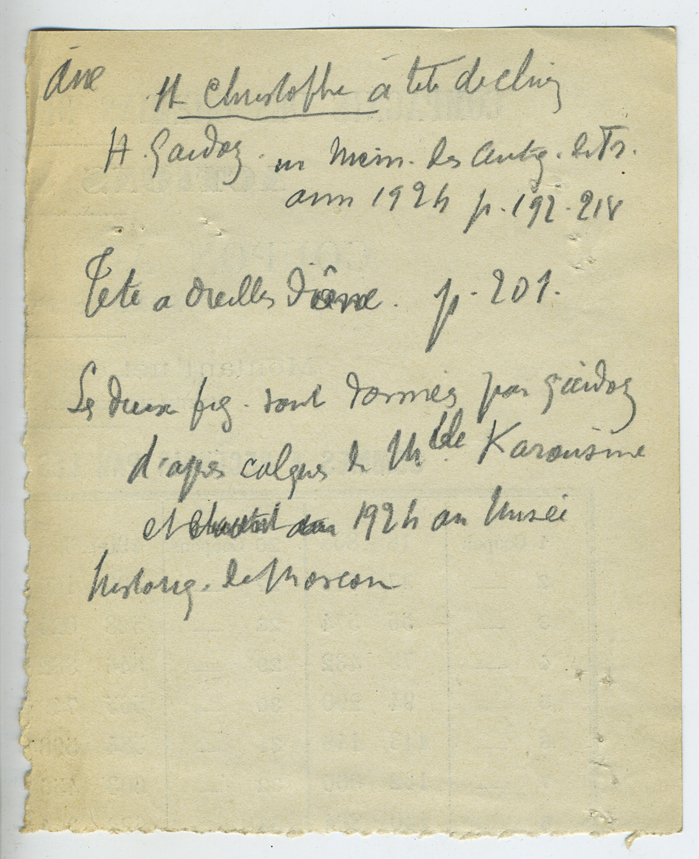 âne
St Christophe à tête de chien
H. Gaidoz in Mém. des Antiq. de Fr.
ann 1924 p. 192-218
Tête a oreilles d'âne. p. 201.
Les deux fig. sont données par Gaidoz
d'après calques de Mlle Karousine
et 1924 au Musée
historiq. de Moscou